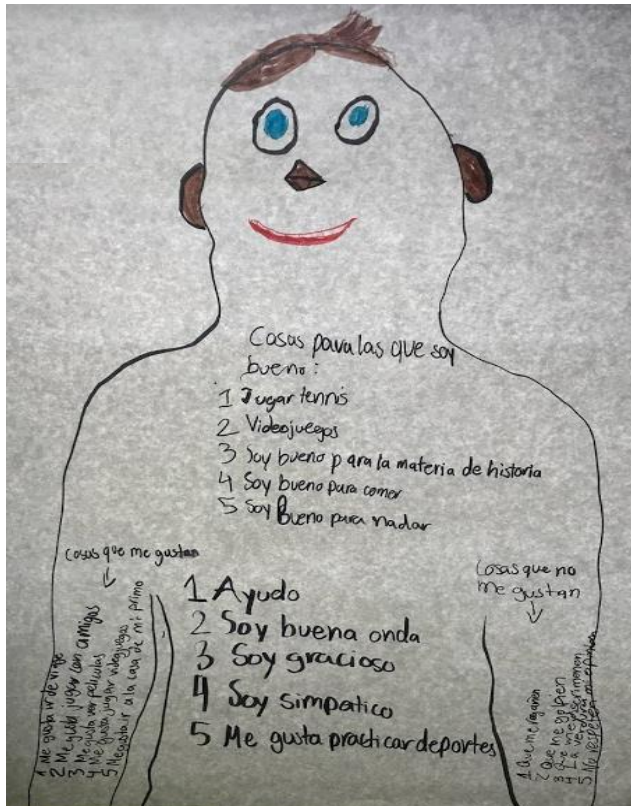 Cosas para las que soy
bueno:
1 Jugar tennis
2 Videojuegos
3 Soy bueno para la materia de historia
4 Soy bueno para comer
5 Soy Bueno para nadar
Cosas que me gustan
1 Me gusta ir de viaje
2 Me gusta jugar con amigos
3 Me gusta ver peliculas
4 Me gusta jugar videojuegos
5 Me gusta ir a la casa de mi primo
1 Ayudo
2 Soy buena onda
3 Soy gracioso
4 Soy simpatico
5 Me gusta practicar deportes
Cosas que no
me gustan
1 Que me regañen
2 Que me golpien
3 Que me discriminen
4 La verdura
5 No respeten mi opinion